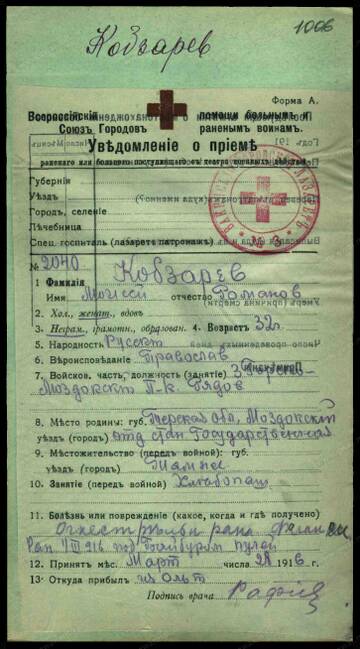 1006
Кобзарев
Форма А.
Всероссійскій помощи больнымъ и
Союзъ Городовъ раненымъ воинамъ.
Увѣдомленіе о пріемѣ
раненаго или больного поступившаго съ театра военныхъ дѣйствій
Губернія
Уѣздъ
Городъ, селеніе
Лѣчебница
Спец. госпиталь (лазаретъ патронажъ)
№ 2040
1 Фамилія Кобзарев
Имя Моисей отчество Романов
2. Хол., женат., вдовъ
3. Неграм., грамотн., образован. 4. Возрастъ 32 л.
5. Народность Русскій
6. Вѣроисповѣданіе Православ
7. Войсков. часть, должность (занятіе) 3 Горско-
Моздокскій п-к. Рядов
8. Мѣсто родины: губ. Терская обл. Моздокскій
уѣздъ (городъ) отд стан Государственская
9. Мѣстожительство (передъ войной): губ.
уѣздъ (городъ) Тамже
10. Занятіе (передъ войной) Хлѣбопаш
11. Болѣзнь или поврежденіе (какое, когда и гдѣ получено)
Огнестрѣльн рана
Ран пулей
12. Принятъ мѣс. Март числа 28 1916 г.
13. Откуда прибылъ из Ольт
Подпись врача